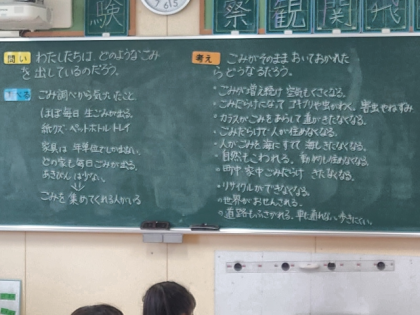 験
祭
観
関
飛
問い わたしたちは、どのようなごみ
を出しているのだろう。
ごみ調べから気づいたこと
ほぼ毎日 生ごみが出る。
紙クズ・ペットボトル・トレイ
家具は 年単位でしか出ない。
どの家も毎日ごみが出る。
あきびんは少ない。
ごみを集めてくれる人がいる
考え ごみがそのままおいておかれた
らどうなるだろう。
・ごみが増え続け 空気もくさくなる。
・ごみだらけになって ゴキブリや虫がわく。 害虫やねずみ
・カラスがごみをあらして道がきたなくなる。
・ごみだらけで人が住めなくなる。
・人がごみを海にすてて海もきたなくなる。
・自然もこわれる。動物も住めなくなる。
・町中 家中ごみだらけ きたなくなる。
・リサイクルができなくなる。
・世界がおせんされる。
・道路もふさがれる。車も通れない。歩きにくい。